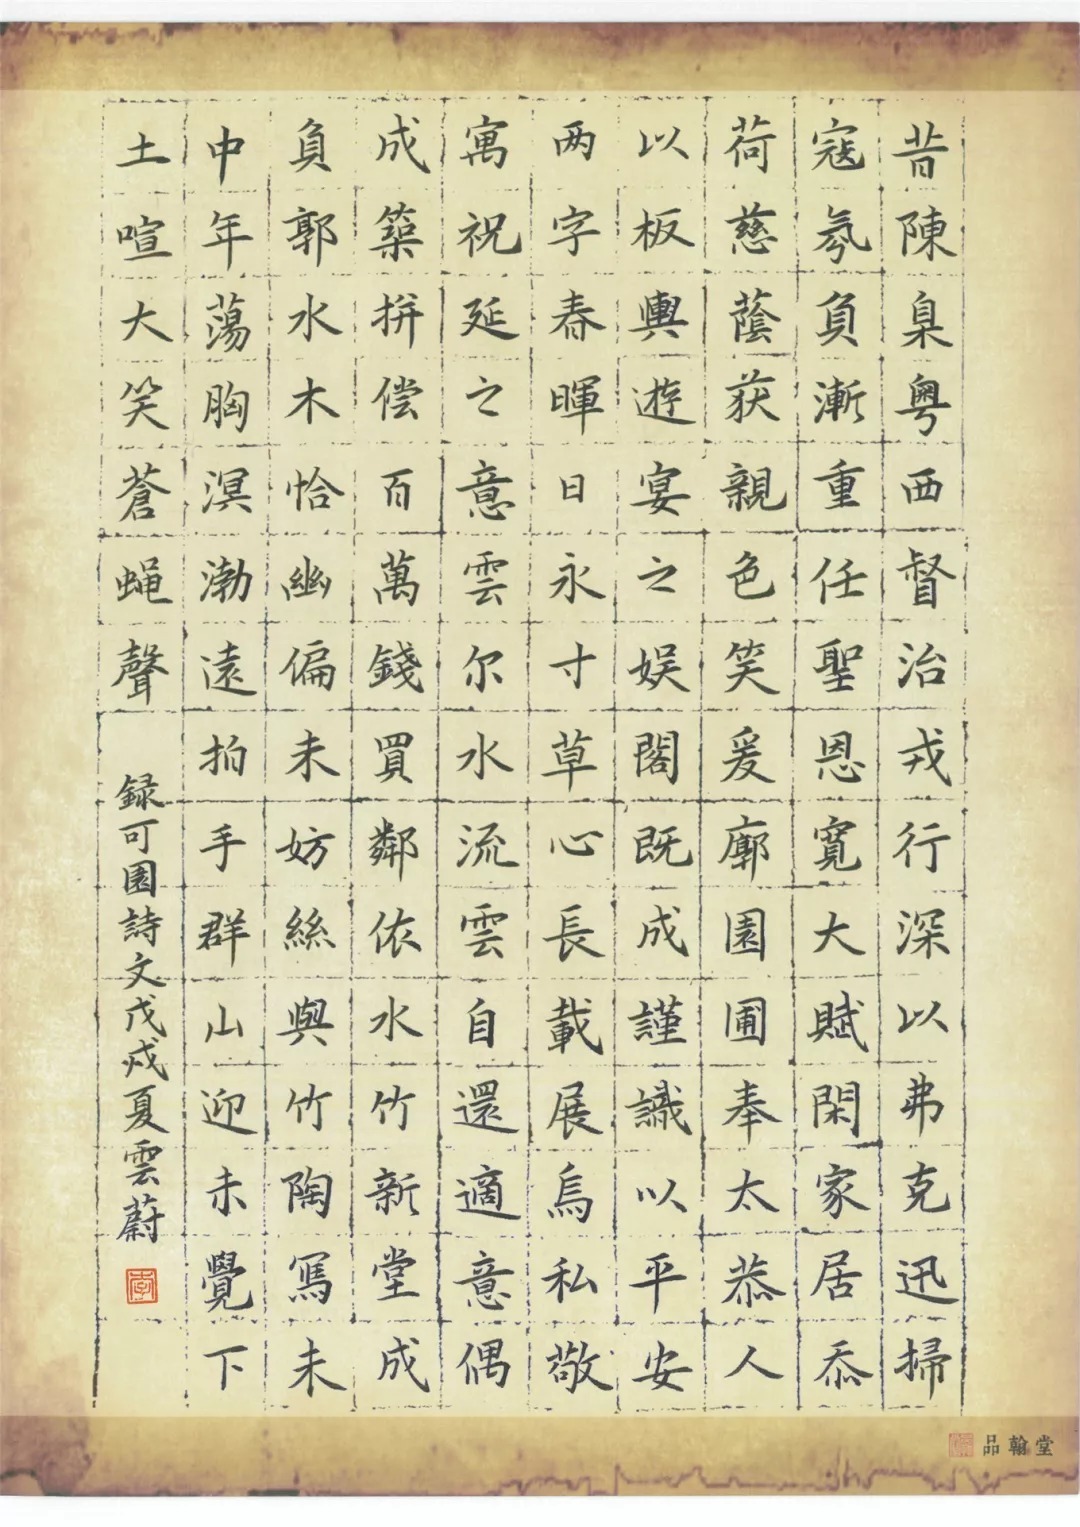 昔陳臬粤西督治戎行深以弗克迅掃
寇氛負漸重任聖恩寬大賦閑家居忝
荷慈蔭获親色笑爰廓園圃奉太恭人
以板輿遊宴之娱閣既成謹識以平安
两字春暉日永寸草心長載展烏私敬
寓祝延之意雲尔水流雲自還適意偶
成築拼偿百萬錢買鄰依水竹新堂成
負郭水木恰幽偏未妨絲與竹陶寫未
中年蕩胸溟渤遠拍手群山迎未覺下
土喧大笑蒼蝇聲
録可園詩文戊戌夏雲蔚
品翰堂